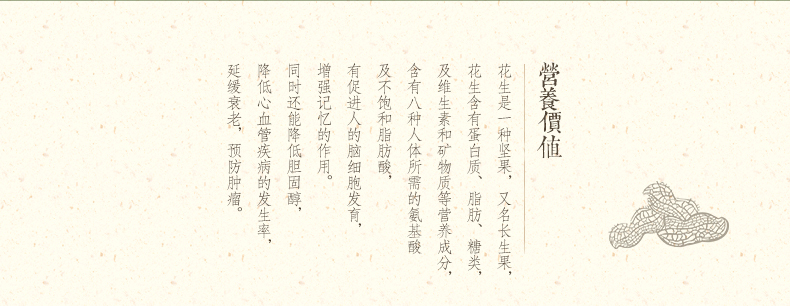 營養價值
花生是一种坚果，又名长生果，
花生含有蛋白质、脂肪、糖类，
及维生素和矿物质等营养成分，
含有八种人体所需的氨基酸
及不饱和脂肪酸，
有促进人的脑细胞发育，
增强记忆的作用。
同时还能降低胆固醇，
降低心血管疾病的发生率，
延缓衰老，预防肿瘤。